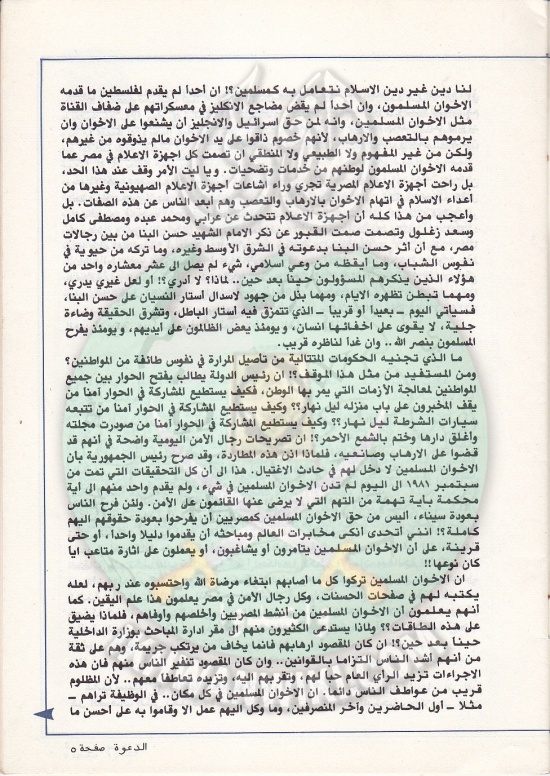 لنا دين غير دين الاسلام نتعامل به كمسلمين؟! ان أحداً لم يقدم لفلسطين ما قدمه
الاخوان المسلمون، وان أحداً لم يقض مضاجع الانكليز في معسكراتهم على ضفاف القناة
مثل الاخوان المسلمين، وانه لمن حق اسرائيل والانجليز أن يشنعوا على الاخوان وان
يرموهم بالتعصب والارهاب، لأنهم خصوم ذاقوا على يد الاخوان مالم يذوقوه من غيرهم،
ولكن من غير المفهوم ولا الطبيعي ولا المنطقي ان تصمت كل اجهزة الاعلام في مصر عما
قدمه الاخوان المسلمون لوطنهم من خدمات وتضحيات. و يا ليت الأمر وقف عند هذا الحد،
بل راحت أجهزة الاعلام المصرية تجري وراء اشاعات أجهزة الاعلام الصهيونية وغيرها من
أعداء الاسلام في اتهام الاخوان بالارهاب والتعصب وهم أبعد الناس عن هذه الصفات. بل
وأعجب من هذا كله أن أجهزة الاعلام تتحدث عن عرابي ومحمد عبده ومصطفى كامل
وسعد زغلول وتصمت صمت القبور عن ذكر الامام الشهيد حسن البنا من بين رجالات
مصر، مع أن أثر حسن البنا بدعوته في الشرق الأوسط وغيره، وما تركه من حيوية في
نفوس الشباب، وما أيقظه من وعي اسلامي، شيء لم يصل الى عشر معشاره واحد من
هؤلاء الذين يذكرهم المسؤولون حيناً بعد حين.. لماذا؟ لا أدري؟! أو لعل غيري يدري،
ومهما تبطن تظهره الايام، ومهما بذل من جهود لاسدال أستار النسيان على حسن البنا،
فسيأتي اليوم ــ بعيداً أو قريباً ــ الذي تتمزق فيه أستار الباطل، وتشرق الحقيقة وضاءة
جلية، لا يقوى على اخفائها انسان، و يومئذ يعض الظالمون على أيديهم، و يومئذ يفرح
المسلمون بنصر الله .. وان غداً لناظره قريب.
ما الذي تجنيه الحكومات المتتالية من تأصيل المرارة في نفوس طائفة من المواطنين؟
ومن المستفيد من مثل هذا الموقف؟! ان رئيس الدولة يطالب بفتح الحوار بين جميع
المواطنين لمعالجة الأزمات التي يمر بها الوطن، فكيف يستطيع المشاركة في الحوار آمنا من
يقف المخبرون على باب منزله ليل نهار؟؟ وكيف يستطيع المشاركة في الحوار آمنا من تتبعه
سيارات الشرطة ليل نهار؟؟ وكيف يستطيع المشاركة في الحوار آمنا من صودرت مجلته
وأغلق دارها وختم بالشمع الأحمر؟! ان تصريحات رجال الأمن اليومية واضحة في أنهم قد
قضوا على الارهاب وصانعيه، فلماذا اذن هذه المطاردة، وقد صرح رئيس الجمهورية بأن
الاخوان المسلمين لا دخل لهم في حادث الاغتيال. هذا الى أن كل التحقيقات التي تمت من
سبتمبر ١٩٨١ الى اليوم لم تدن الاخوان المسلمين في شيء، ولم يقدم واحد منهم الى أية
محكمة بأية تهمة من التهم التي لا يرضى عنها القائمون على الأمن. ولئن فرح الناس
بعودة سيناء، أليس من حق الاخوان المسلمين كمصريين أن يفرحوا بعودة حقوقهم اليهم
كاملة؟! انني أتحدى أنكى مخابرات العالم ومباحثه أن يقدموا دليلا واحداً، أو حتى
قرينة، على أن الاخوان المسلمين يتآمرون أو يشاغبون، أو يعملون على اثارة متاعب ايا
كان نوعها!!
ان الاخوان المسلمين تركوا كل ما أصابهم ابتغاء مرضاة الله واحتسبوه عند ربهم، لعله
يكتبه لهم في صفحات الحسنات، وكل رجال الأمن في مصر يعلمون هذا علم اليقين. كما
أنهم يعلمون أن الاخوان المسلمين من أنشط المصريين وأخلصهم وأوفاهم، فلماذا يضيق
على هذه الطاقات؟؟ ولماذا يستدعى الكثيرون منهم الى مقر ادارة المباحث بوزارة الداخلية
حيناً بعد حين؟! ان كان المقصود ارهابهم فانما يخاف من يرتكب جريمة، وهم على ثقة
من أنهم أشد الناس التزاما بالقوانين.. وان كان المقصود تنفير الناس منهم فان هذه
الاجراءات تزيد الرأي العام حباً لهم، وتقربهم اليه، وتزيده تعاطفاً معهم.. لأن المظلوم
قريب من عواطف الناس دائماً. ان الاخوان المسلمين في كل مكان.. في الوظيفة تراهم ــ
مثلا ــ أول الحاضرين وآخر المنصرفين، وما وكل اليهم عمل الا وقاموا به على أحسن ما
الدعوة صفحة ٥